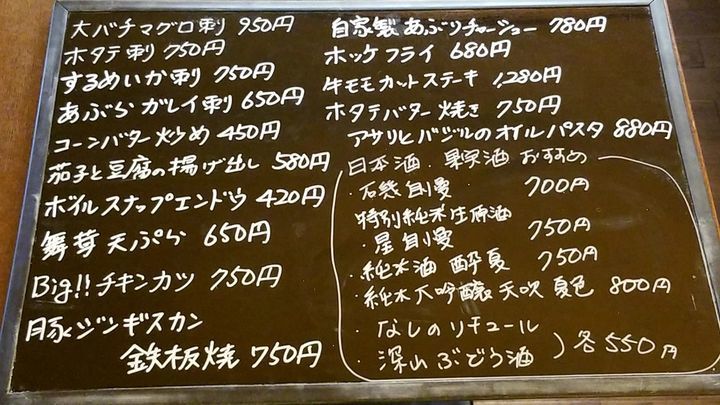 大バチマグロ刺 950円
ホタテ刺 750円
するめいか刺 750円
あぶらガレイ刺 650円
コーンバター炒め 450円
茄子と豆腐の揚げ出し 580円
ボイルスナップエンドウ 420円
舞茸天ぷら 650円
Big!! チキンカツ 750円
豚ジンギスカン
鉄板焼 750円
自家製あぶりチャーシュー 780円
ホッケフライ 680円
牛モモカットステーキ 1,280円
ホタテバター焼き 750円
アサリとバジルのオイルパスタ 880円
日本酒・果実酒 おすすめ
・石鎚 自慢 700円
特別純米生原酒
・星自慢 750円
・純米酒 酔夏 750円
・純米大吟醸 天吹 夏色 800円
・なしのリキュール
・深山ぶどう酒 ) 各550円